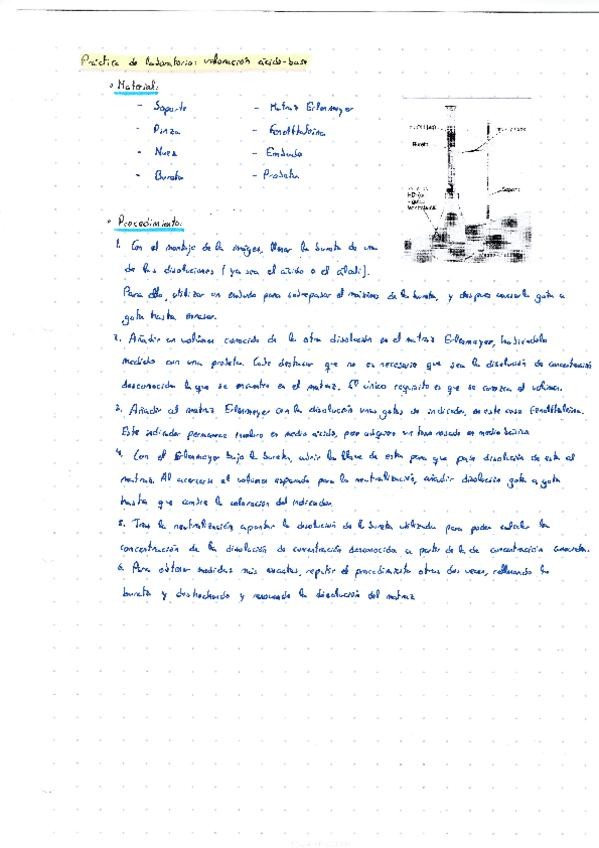 Práctica de laboratorio: valoración ácido-base
• Material:
- Soporte
- Pinza
- Nuez
- Bureta
- Matraz Erlenmeyer
- Fenolftaleína
- Embudo
- Probeta
Bureta
Soporte
• Procedimiento:
1. Con el montaje de la imagen, llenar la bureta de una
de las disoluciones (ya sea el ácido o el álcali).
Para ello, utilizar un embudo para sobrepasar el máximo de la bureta, y después vaciarla gota a
gota hasta enrasar.
2. Añadir un volumen conocido de la otra disolución en el matraz Erlenmeyer, habiéndolo
medido con una probeta. Cabe destacar que no es necesario que sea la disolución de concentración
desconocida la que se encuentre en el matraz. El único requisito es que se conozca el volumen.
3. Añadir al matraz Erlenmeyer con la disolución unas gotas de indicador, en este caso fenolftaleína.
Este indicador permanece incoloro en medio ácido, pero adquiere un tono rosado en medio básico.
4. Con el Erlenmeyer bajo la bureta, abrir la llave de esta para que pase disolución de esta al
matraz. Al acercarse al volumen esperado para la neutralización, añadir disolución gota a gota
hasta que cambie la coloración del indicador.
5. Tras la neutralización apuntar la disolución de la bureta utilizada para poder calcular la
concentración de la disolución de concentración desconocida a partir de la de concentración conocida.
6. Para obtener medidas más exactas, repetir el procedimiento otras dos veces, rellenando la
bureta y deshechando y renovando la disolución del matraz